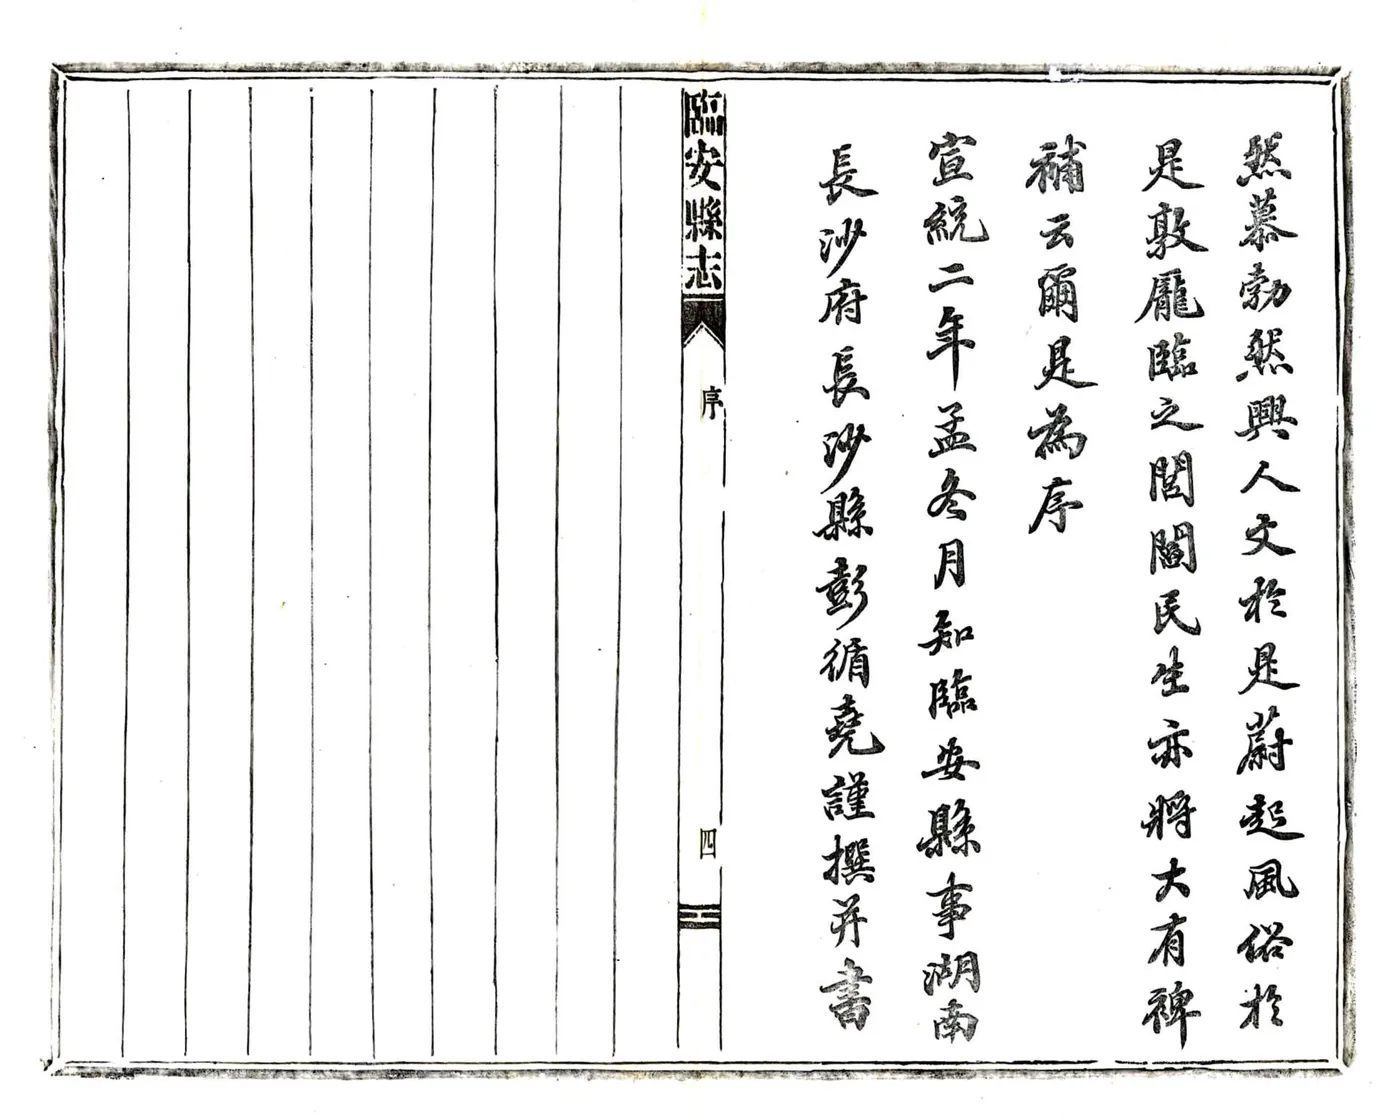 然慕勃然興人文於是蔚起風俗於
是敦龐臨之閭閻民生亦將大有裨
補云爾是為序
宣統二年孟冬月知臨安縣事湖南
長沙府長沙縣彭循堯謹撰并書
臨安縣志
序
四